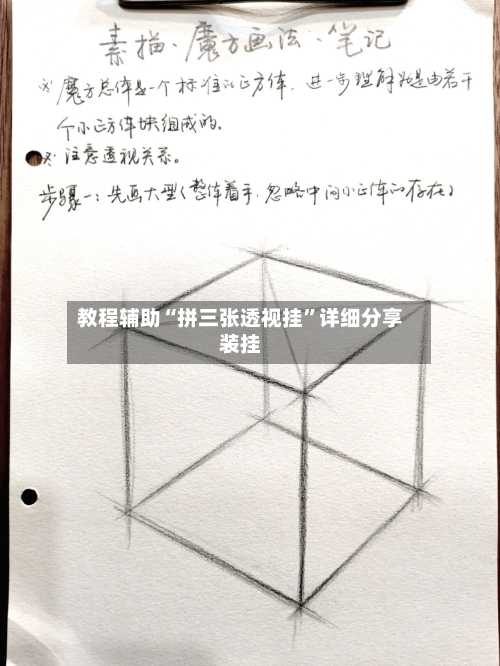 素描、魔方画法、笔记
※ 魔方总体是一个标准的正方体，进一步理解就是由若干
个小正方体块组成的。
※ 注意透视关系。
步骤一：先画大型（整体着手，忽略中间小正体的存在）
教程辅助“拼三张透视挂”详细分享
装挂